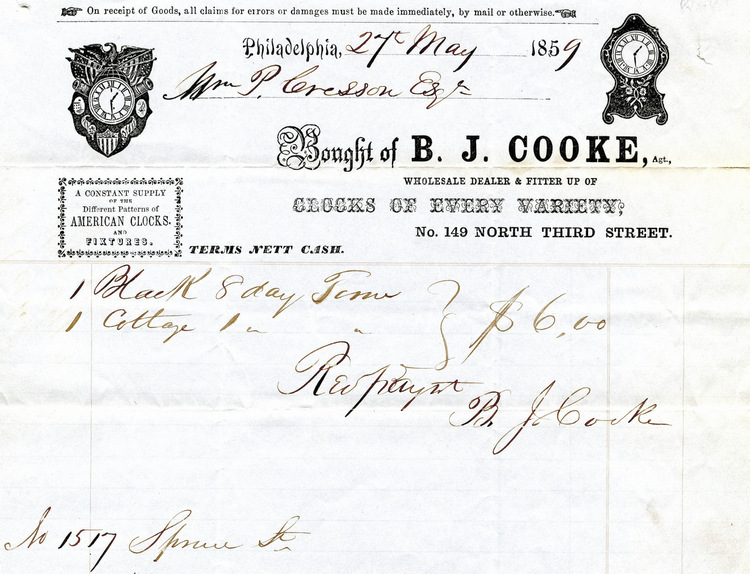 On receipt of Goods, all claims for errors or damages must be made immediately, by mail or otherwise.
Philadelphia, 27t May 1859
Wm P. Cresson Esqr
Bought of B. J. COOKE, Agt.,
WHOLESALE DEALER & FITTER UP OF
CLOCKS OF EVERY VARIETY,
No. 149 NORTH THIRD STREET.
A CONSTANT SUPPLY
OF THE
Different Patterns of
AMERICAN CLOCKS.
AND
FIXTURES.
TERMS NETT CASH.
1 Black 8 day Time
1 Cottage 1 " " } $6,00
Recd paymt
B. J. Cooke
No 1517 Spruce St